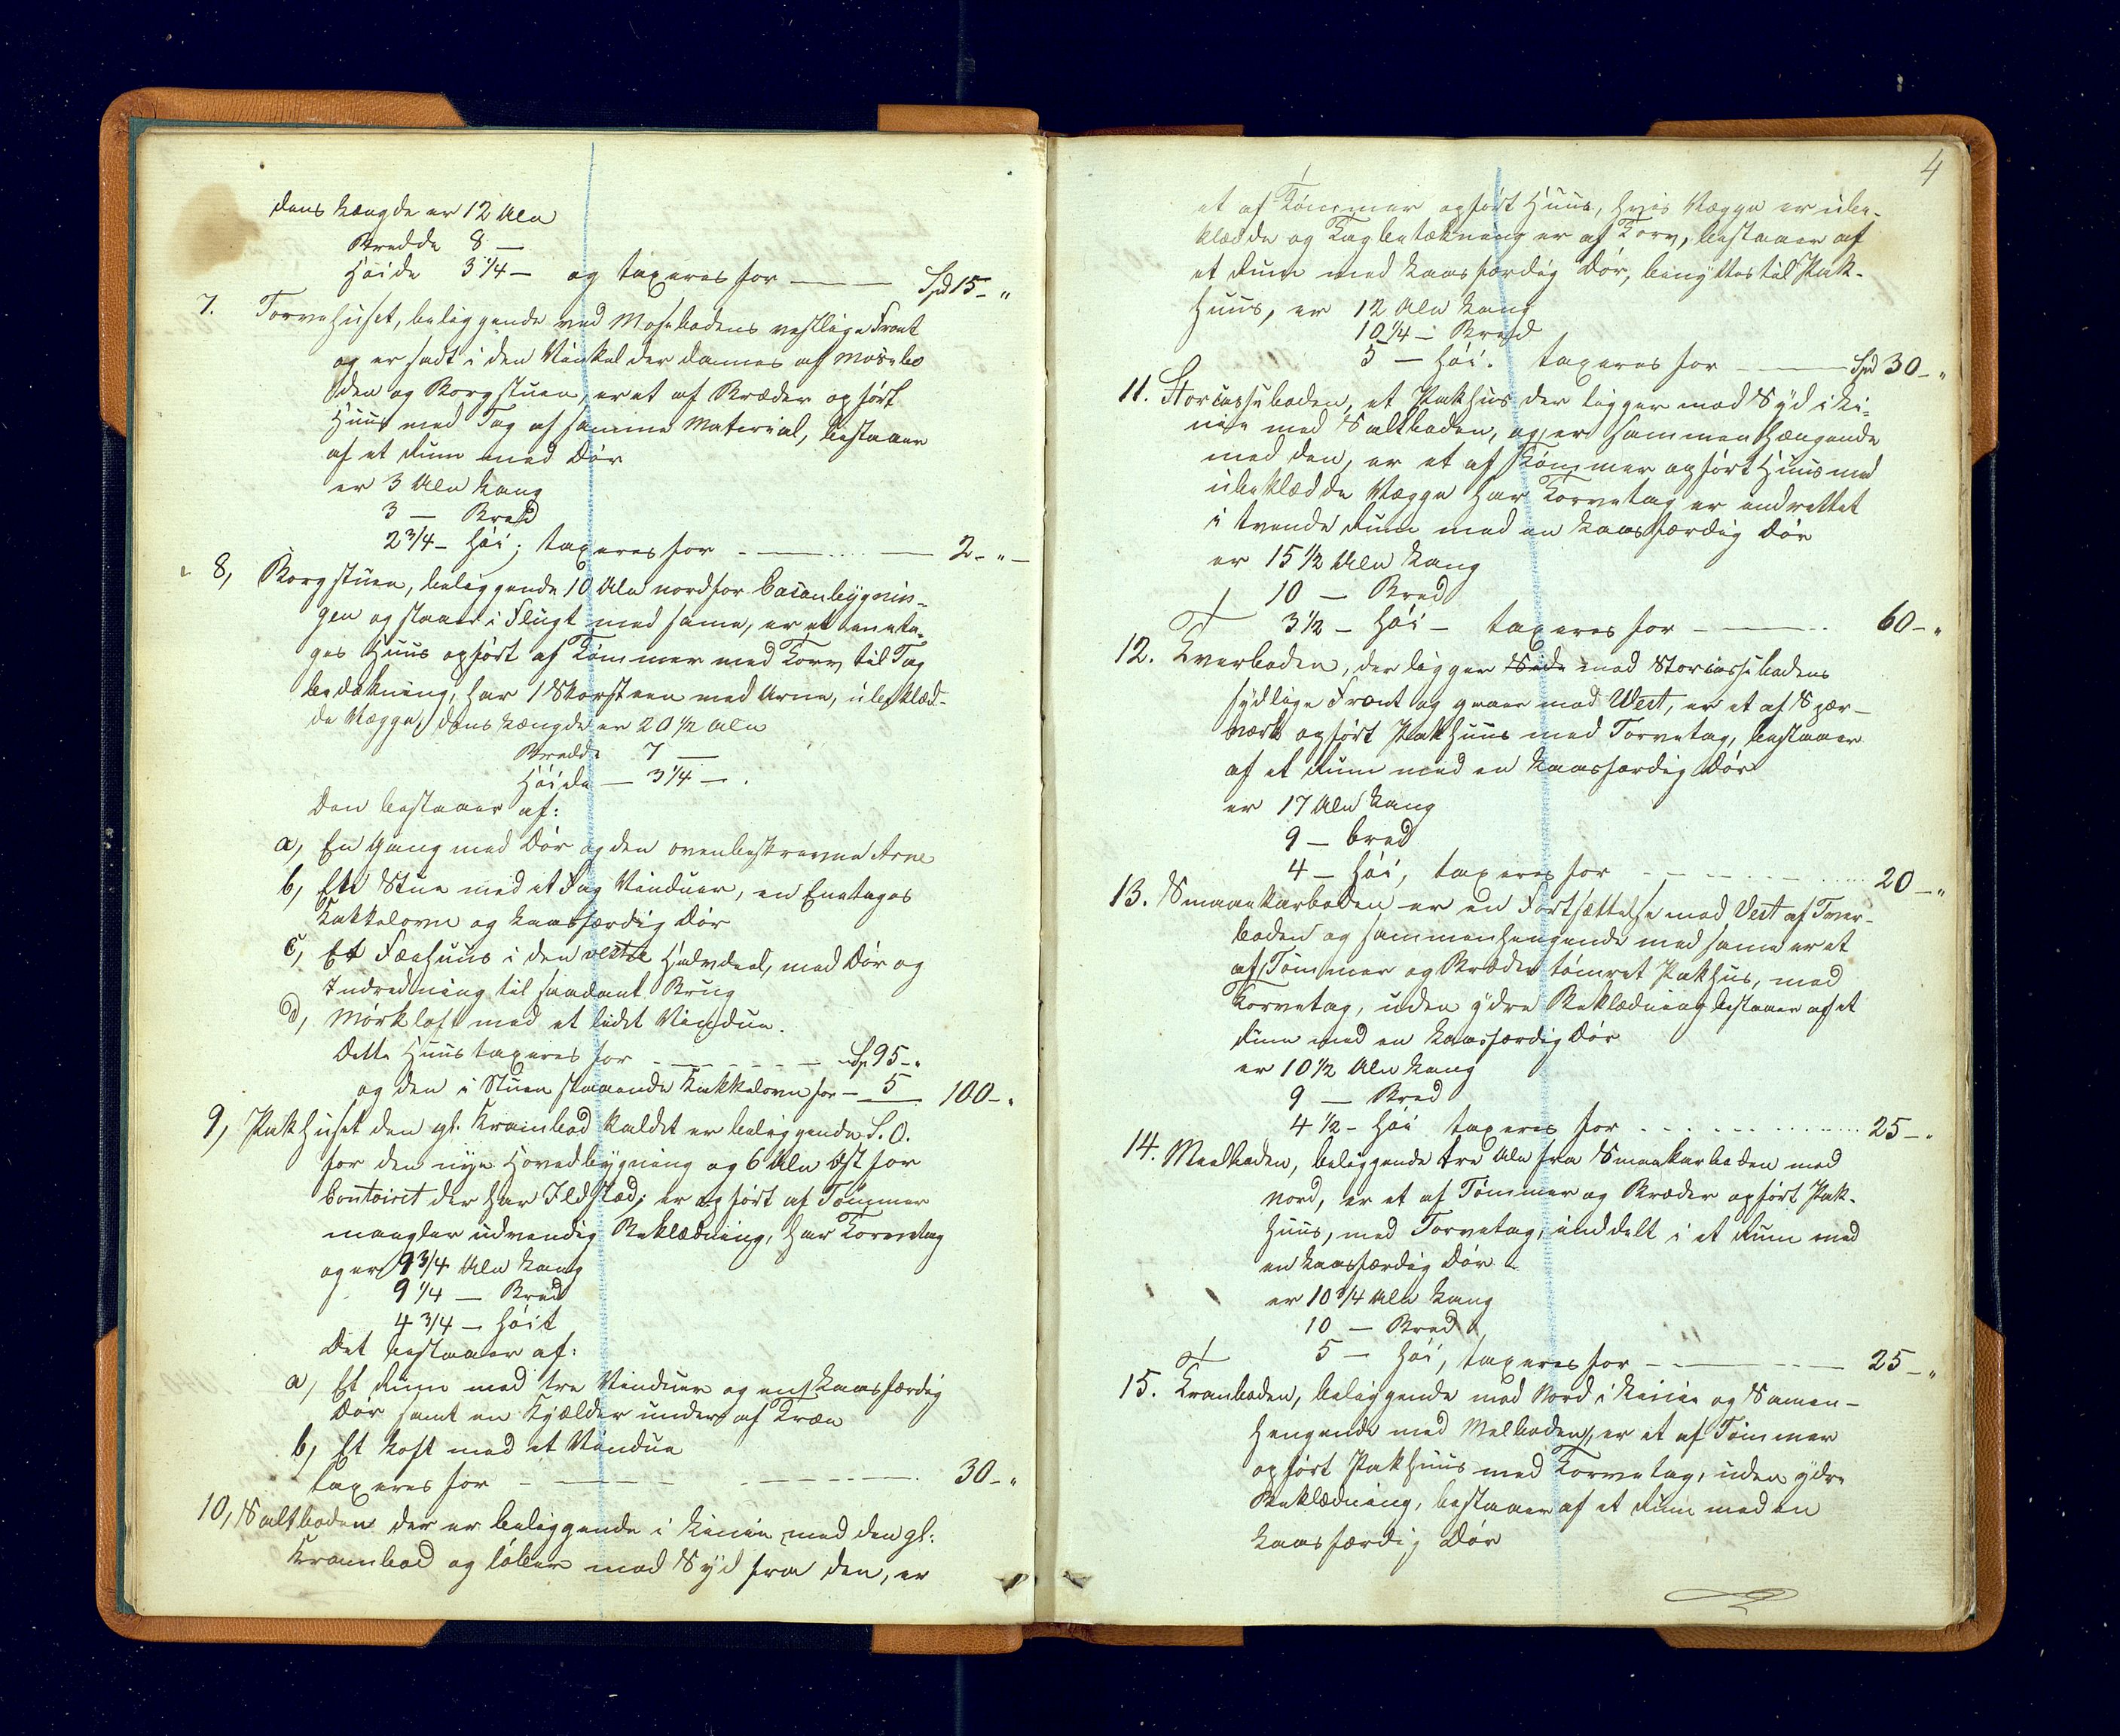 dens Længde er 12 Alen
Bredde 8 —
Høide 3 1/4 — og taxeres for — — Spd 15 - "
7. Torvehuset, beliggende ved Mosebodens vestlige Front
og er sadt i den Vinkel der dannes af Mosebo
den og Borgstuen, er et af Bræder opført
Huus med Tag af samme Material, bestaaer
af et Rum med Dør
er 3 Alen Lang
3 — Bred
2 3/4 - Høi; taxeres for - — — 2 - " —
8, Borgstuen, beliggende 10 Alen nordfor Caienbygnin-
gen og staaer i Flugt med samme, er et eneta-
ges Huus opført af Tømmer med Torv til Tag
bedækning, har 1 Skorsteen med Arne, ubeklæd-
de Vægge, dens Længde er 20 1/2 Alen
Bredde 7 —
Høide — 3 1/4 — .
Den bestaaer af:
a, En Gang med Dør og den ovenbeskrevne Arne
b, Ett Stue med et Fag Vinduer, en Enetages
Kakkelovn og Laasfærdig Dør
c, Et Fæehuus i den vestre Halvdeel, med Dør og
Indredning til saadant Brug
d, Mørkloft med et lidet Vindue.
Dette Huus taxeres for - — - - - — Sp 95 - "
og den i Stuen staaende Kakkelovn for - 5 100 - "
9, Pakhuset den gl. Krambod kaldet er beliggende S. O.
for den nye Hovedbygning og 6 Alen Øst for
Contoiret der har Ildsted; er opført af Tømmer
mangler udvendig Beklædning, har Torvetag
og er 9 3/4 Alen Lang
9 1/4 — Bred
4 3/4 — Høit
Det bestaaer af:
a, Et Rum med tre Vinduer og en Laasfærdig
Dør samt en Kjælder under af Træe
b, Et Loft med et Vindue
taxeres for - — — - - — - - - — . 30 - "
10, Saltboden der er beliggende i Linie med den gl:
Krambod og løber mod Syd fra den, er
4
et af Tømmer opført Huus, hvis Vægge er ube-
klædde og Tagbetækning er af Torv, bestaaer af
et Rum med Laasfærdig Dør, benyttes til Pak-
Huus, er 12 Alen Lang
10 1/4 — Bred
5 — Høi. taxeres for - — Spd 30 - "
11. Storiasseboden, et Pakhus der ligger mod Syd i Li-
nie med Saltboden, og er sammenhængende
med den, er et af Tømmer opført Huus med
ubeklædde Vægge har Torvetag er indrettet
i tvende Rum med en Laasfærdig Dør
er 15 1/2 Alen Lang
10 — Bred
3 1/2 - Høi - taxeres for - — - . 60 - "
12. Tverboden, der ligger Side mod Storiassebodens
sydlige Front og gaaer mod West, er et af Spær-
værk opført Pakhuus med Torvetag, bestaaer
af et Rum med en Laasfærdig Dør
er 17 Alen Lang
9 — bred
4 — Høi, taxeres for - - - - - - 20 - "
13. Smaaekarboden er en Fortsættelse mod Vest af Tver-
boden og sammenhengende med samme er et
af Tømmer og Bræder tømret Pakhus, med
Torvetag, uden ydre Beklædning bestaaer af et
Rum med en Laasfærdig Dør
er 10 1/2 Alen Lang
9 — Bred
4 1/2 - Høi taxeres for . . . . . . . 25 - "
14. Meelboden, beliggende tre Alen fra Smaakarboden mod
Nord, er et af Tømmer og Bræder opført Pak-
Huus, med Torvetag, inddelt i et Rum med
en Laasfærdig Dør
er 10 3/4 Alen Lang
10 — Bred
5 — Høi, taxeres for - — - - — 25 - "
15. Tranboden, beliggende mod Nord i Linie og Samen-
hengende med Melboden, er et af Tømmer
opført Pakhuus med Torvetag, uden ydre
Beklædning, bestaaer af et Rum med en
Laasfærdig Dør